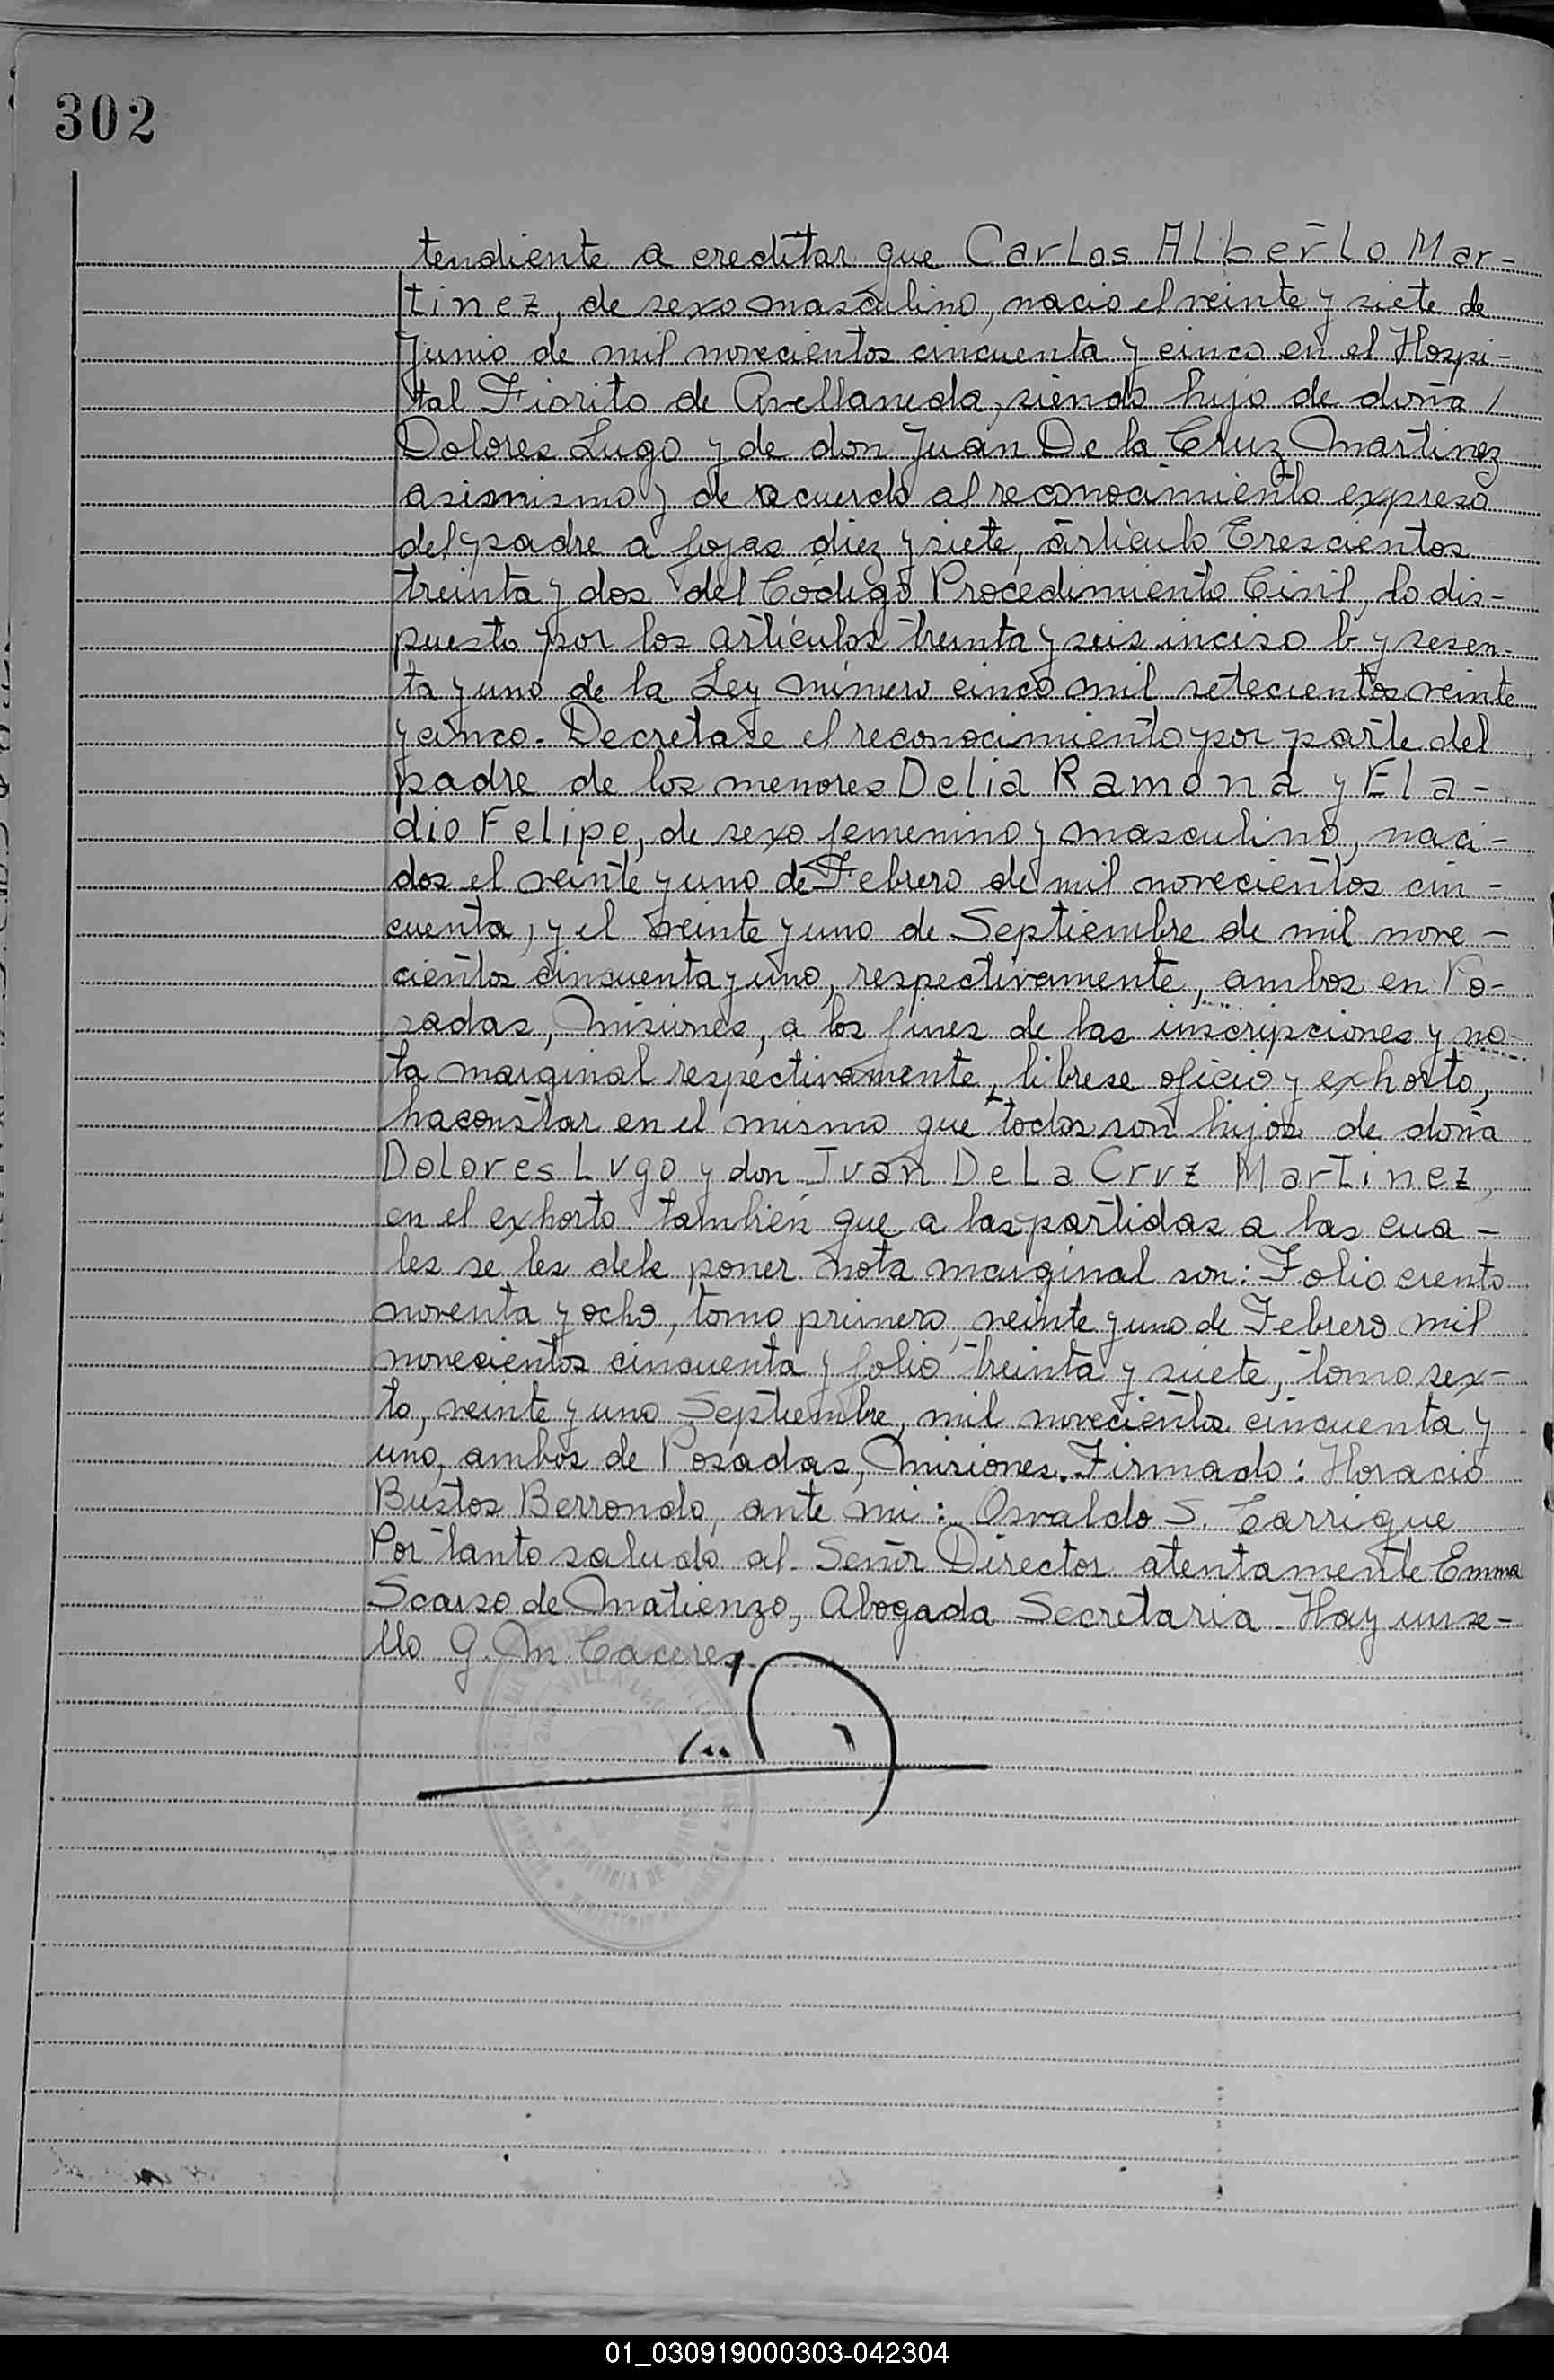 302
tendiente a ereditar que Carlos Alberto Mar-
tinez, de sexo masculino, nacio el veinte y siete de
Junio de mil novecientos cincuenta y cinco en el Hospi-
tal Fiorito de Avellaneda, siendo hijo de doña /
Dolores Lugo y de don Juan De la Cruz Martinez
asimismo y de acuerdo al reconocimiento expreso
del padre a fojas diez y siete, artículo Trescientos
treinta y dos del Código Procedimiento Civil, lo dis-
puesto por los artículos treinta y seis inciso b y sesen-
ta y uno de la Ley número cinco mil setecientos veinte
y cinco. Decretase el reconocimiento por parte del
padre de los menores Delia Ramona y Ela-
dio Felipe, de sexo femenino y masculino, naci-
dos el veinte y uno de Febrero de mil novecientos cin-
cuenta, y el veinte y uno de Septiembre de mil nove-
cientos cincuenta y uno, respectivamente, ambos en Po-
sadas, Misiones, a los fines de las inscripciones y no-
ta marginal respectivamente, librese oficio y exhorto,
haconstar en el mismo que todos son hijos de doña
Dolores Lugo y don Juan De La Cruz Martinez,
en el exhorto también que a las partidas a las cua-
les se les debe poner nota marginal son: Folio ciento
noventa y ocho, tomo primero, veinte y uno de Febrero mil
novecientos cincuenta y folio treinta y siete, tomo sex-
to, veinte y uno Septiembre, mil novecientos cincuenta y
uno, ambos de Posadas, Misiones. Firmado: Horacio
Bustos Berrondo, ante mi: Osvaldo S. Carrique
Por tanto saludo al Señor Director atentamente Emma
Scarso de Matienzo, Abogada Secretaria. Hay un se-
llo G. M. Caceres
PROVINCIA DE
01_030919000303-042304